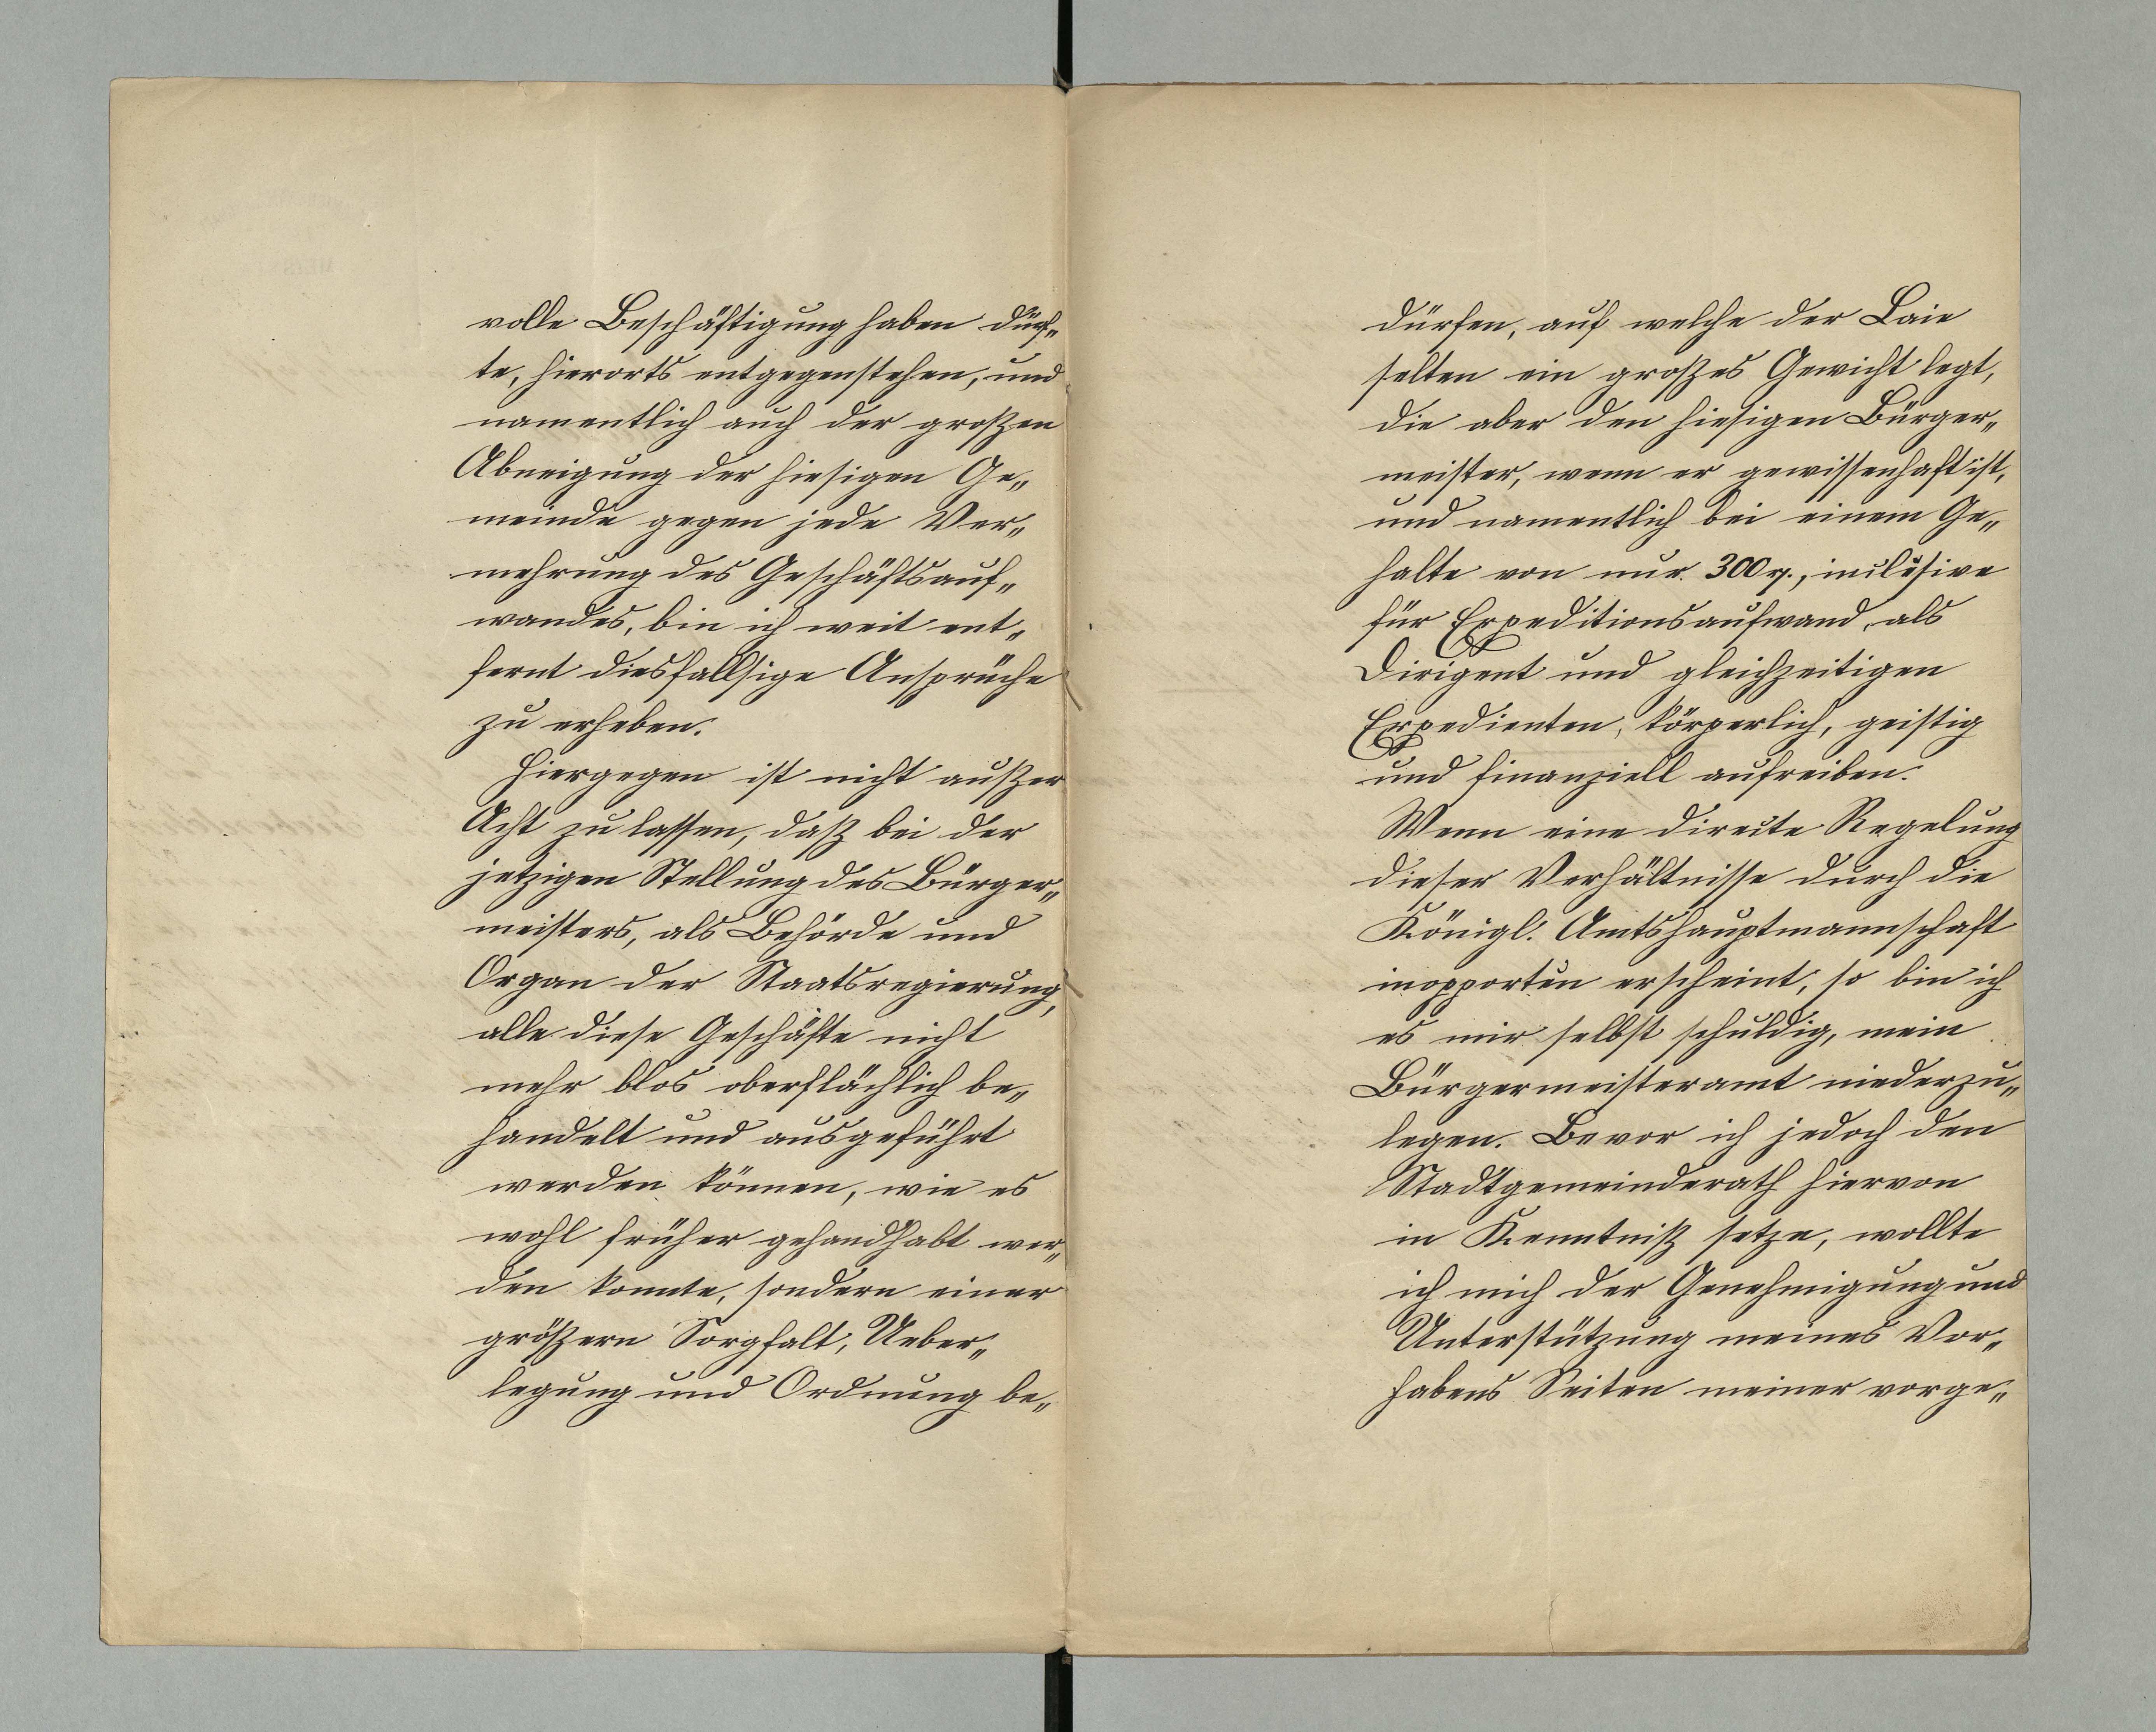 volle Beschäftigung haben dürf„
te, hierorts entgegenstehen, und
namentlich auch der großen
Abneigung der hiesigen Ge„
meinde gegen jede Ver„
mehrung des Geschäftsauf„
wandes, bin ich weit ent„
fernt diesfallsige Ansprüche
zu erheben.
Hiergegen ist nicht außer
Acht zu lassen, daß bei der
jetzigen Stellung des Bürger„
meisters, als Behörde und
Organ der Staatsregierung,
alle diese Geschäfte nicht
mehr blos oberflächlich be„
handelt und ausgeführt
werden können, wie es
wohl früher gehandhabt wer„
den konnte, sondern einer
größern Sorgfalt, Ueber„
legung und Ordnung be„
dürfen, auf welche der Laie
selten ein großes Gewicht legt,
die aber den hiesigen Bürger„
meister, wenn er gewissenhaft ist,
und namentlich bei einem Ge„
halte von nur 300 , inclusive
für Expeditionsaufwand, als
Dirigent und gleichzeitigen
Expedienten, körperlich, geistig
und finanziell aufreiben.
Wenn eine directe Regelung
dieser Verhältnisse durch die
Königl. Amtshauptmannschaft
inopportun erscheint, so bin ich
es mir selbst schuldig, mein
Bürgermeisteramt niederzu„
legen. Bevor ich jedoch den
Stadtgemeinderath hiervon
in Kenntniß setze, wollte
ich mich der Genehmigung und
Unterstützung meines Vor„
habens Seiten meiner vorge„